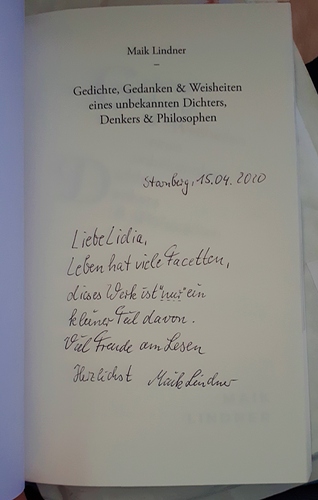 Maik Lindner
–
Gedichte, Gedanken & Weisheiten
eines unbekannten Dichters,
Denkers & Philosophen
Starnberg, 15.04.2020
Liebe Lidia,
Leben hat viele Facetten,
dieses Werk ist "nur" ein
kleiner Teil davon.
Viel Freude am Lesen
Herzlichst Maik Lindner